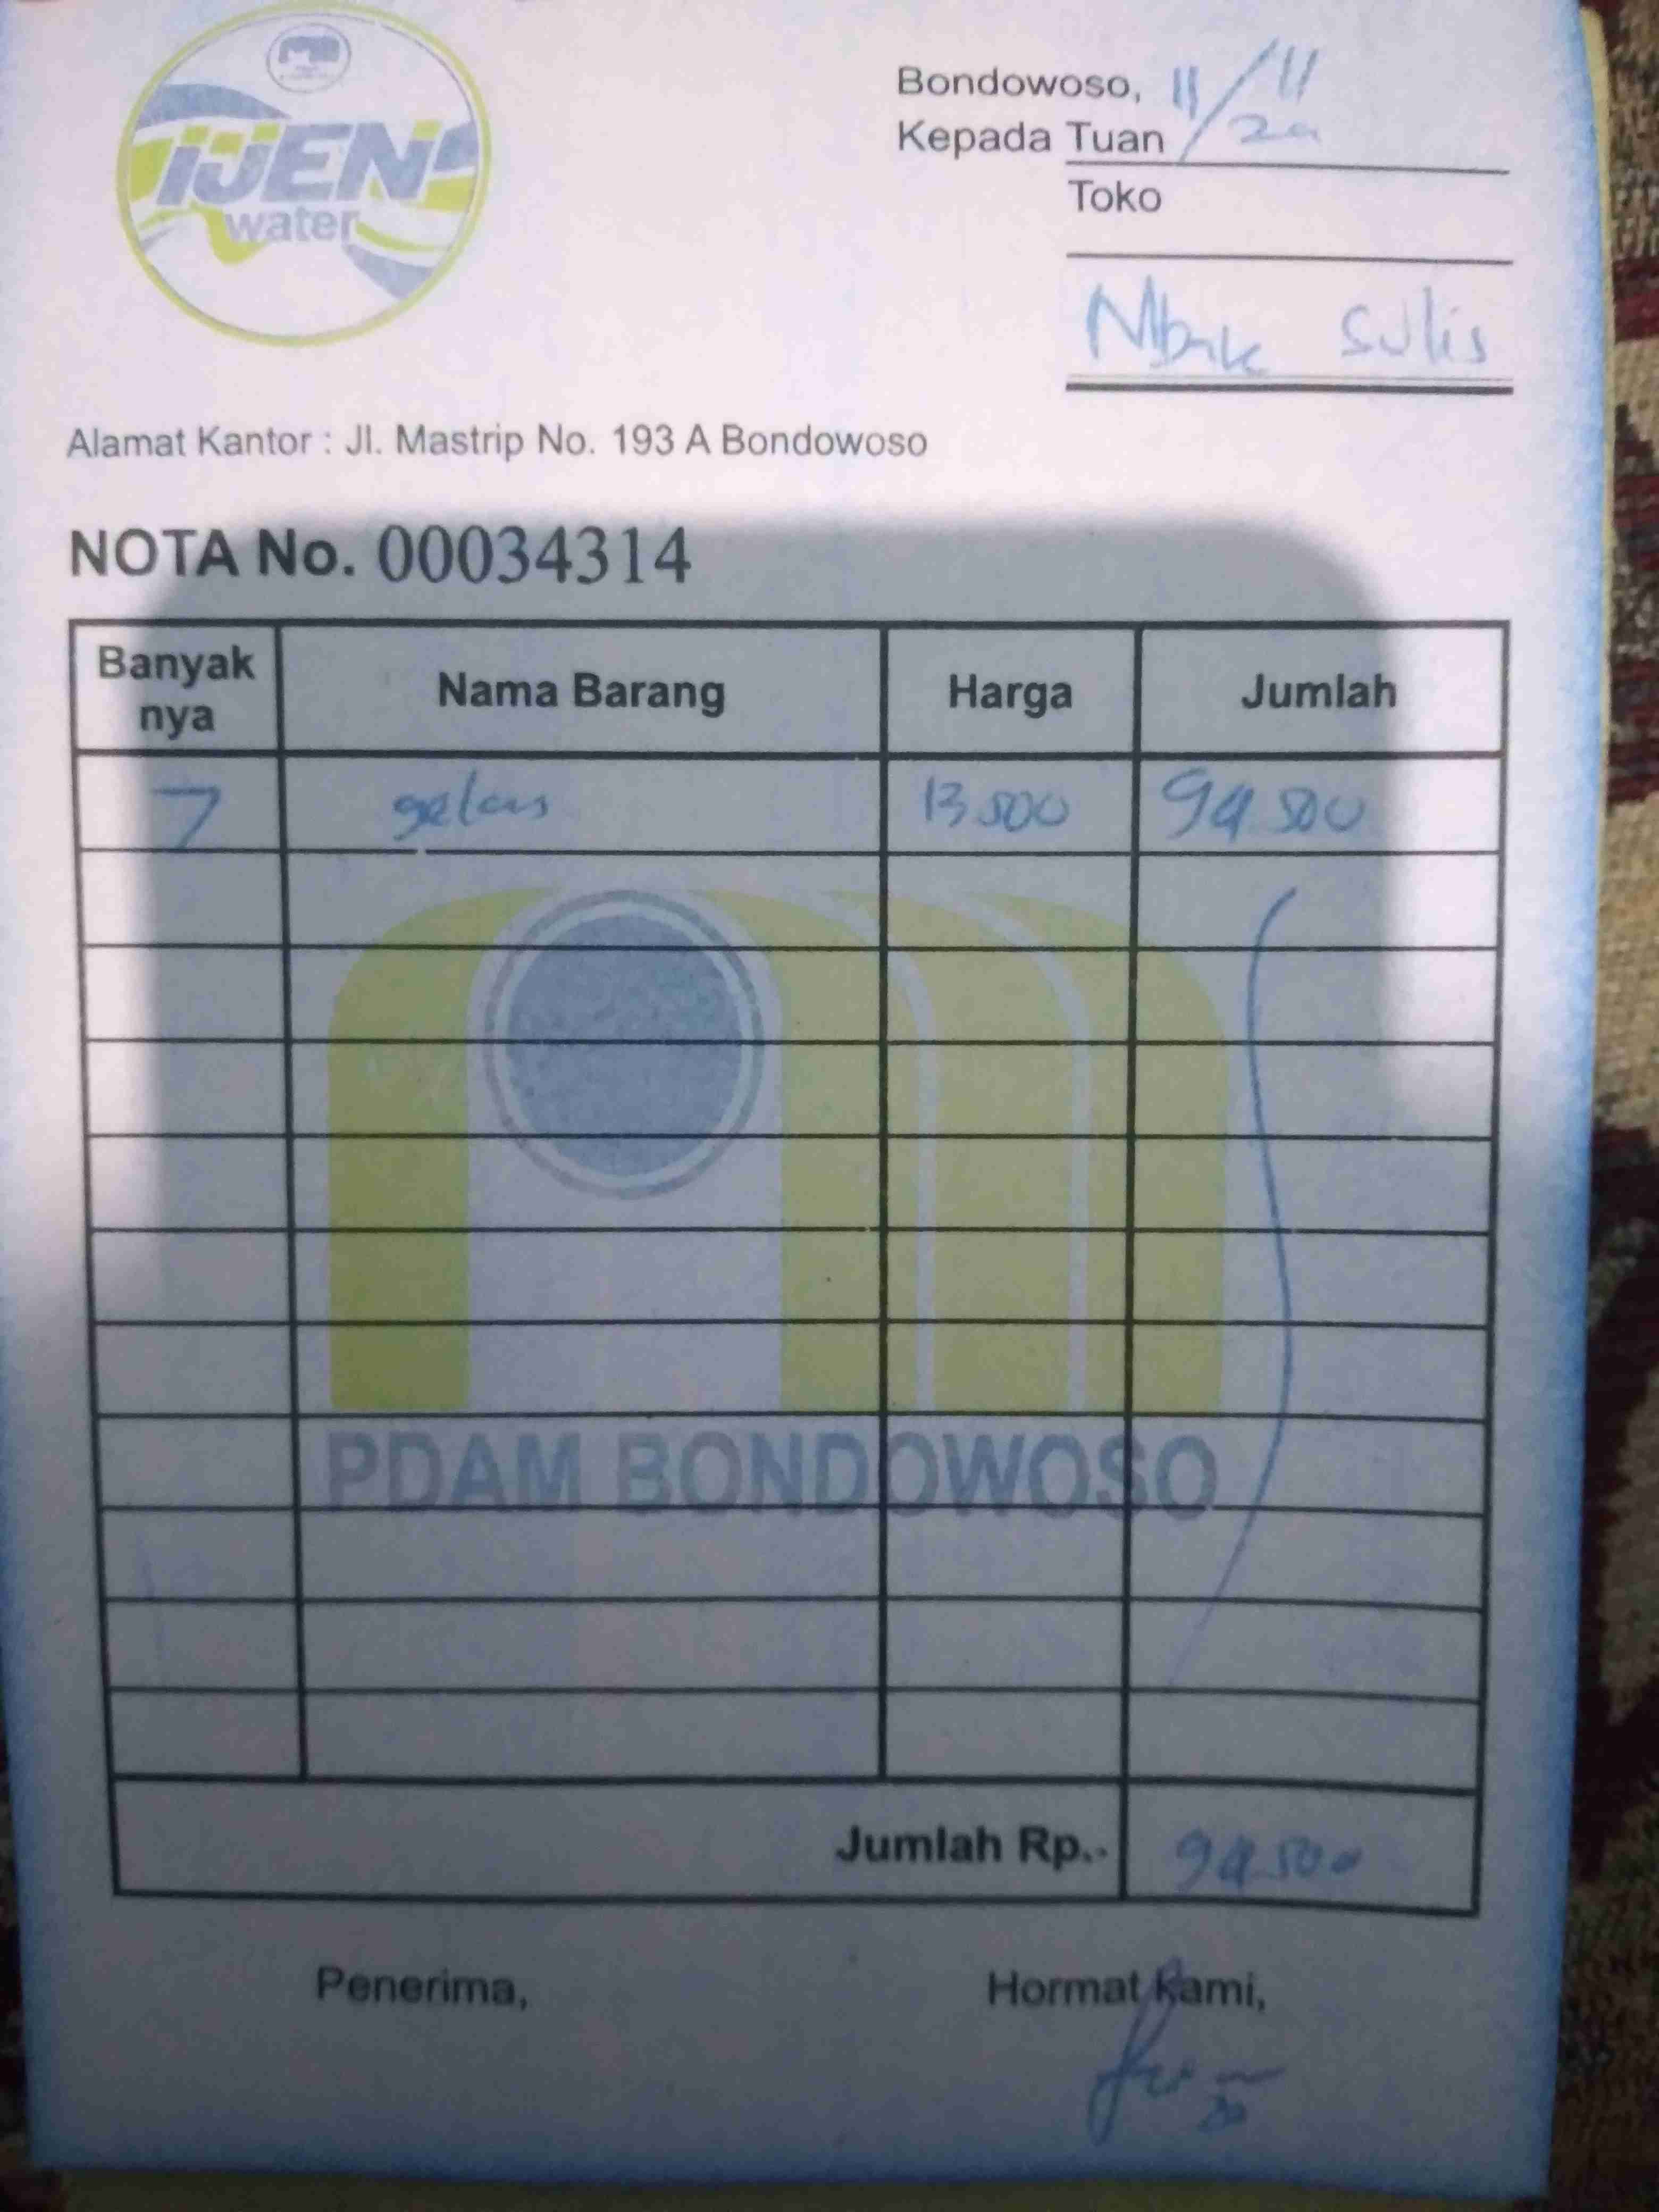 IJEN
water
Bondowoso, 11/11
Kepada Tuan
Toko
Mbak Sulis
Alamat Kantor : Jl. Mastrip No. 193 A Bondowoso
NOTA No. 00034314
Banyak nya Nama Barang Harga Jumlah
7 gelas 13.500 94.500
PDAM BONDOWOSO
Jumlah Rp.- 94.500
Penerima, Hormat Kami,